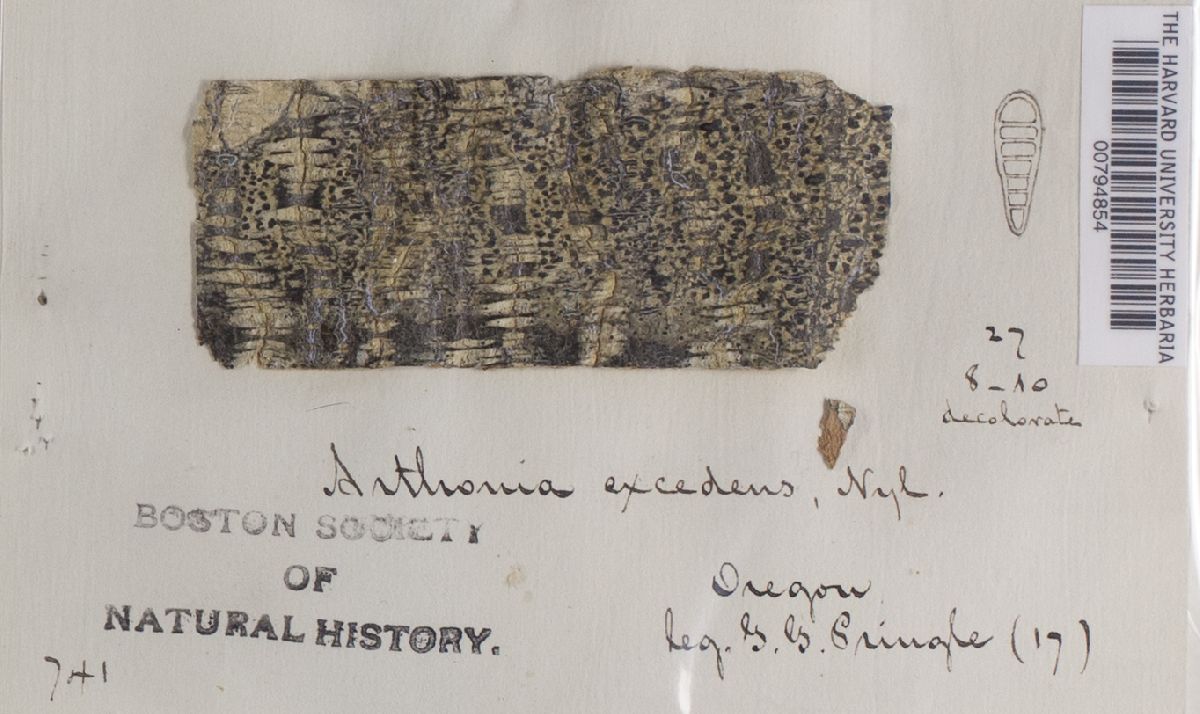 THE HARVARD UNIVERSITY HERBARIA
00794854
27
8-10
decolorate
Arthonia excedens, Nyl.
BOSTON SOCIETY
OF
NATURAL HISTORY.
Oregon
leg. G. G. Pringle (17)
741